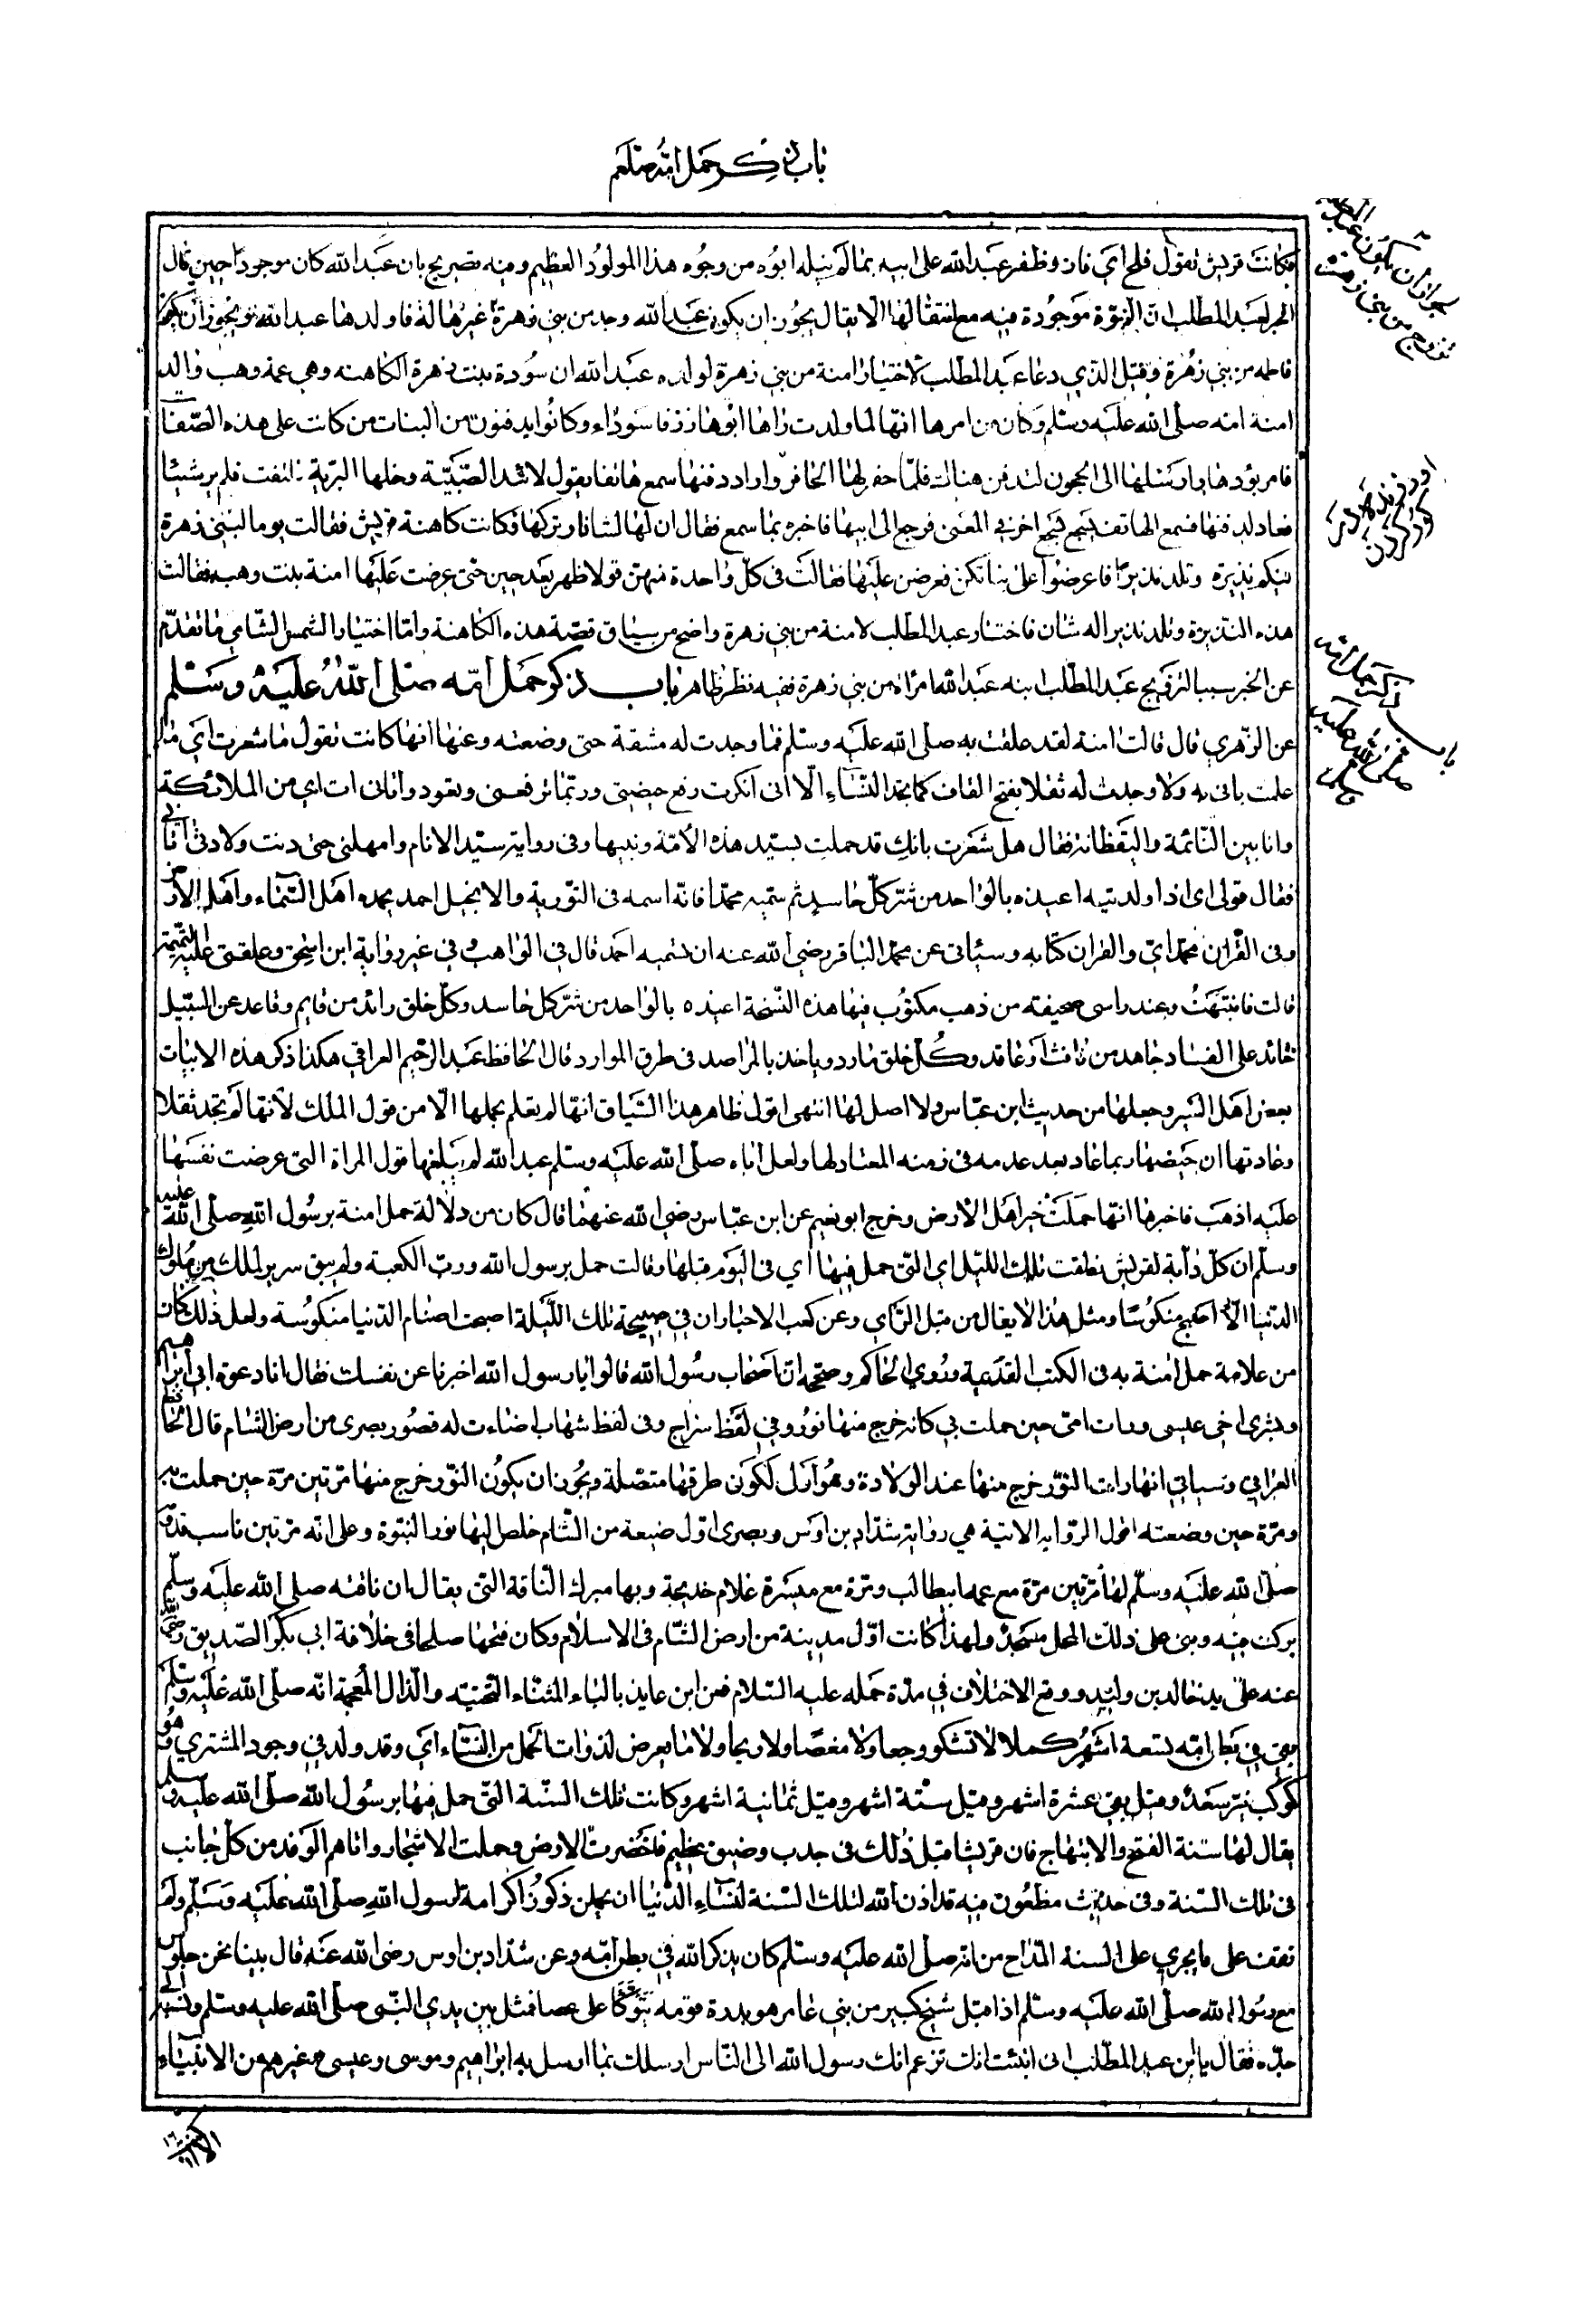 باب ذكر حمل امه صلعم
فكانت قريش تقول فلح اي فاز وظفر عبد الله على ابيه بما لم ينله ابوه من وجوه هذا المولود العظيم ومنه تصريح بان عبد الله كان موجودا حين قال
الحبر لعبد المطلب ان النبوة موجودة فيه مع انتقالها الا يقال يجوز ان يكون عبد الله وجد من بني زهرة غيرهالة فاولدها عبد الله ويجوز ان يكون
فاطمه من بني زهرة وقيل الذي دعا عبد المطلب لاختيار امنة من بني زهرة لولده عبد الله ان سودة بنت زهرة الكاهنه وهي عمة وهب والد
امنة امه صلى الله عليه وسلم وكان من امرها انها لما ولدت راها ابوها زرقا سوداء وكانوا يدفنون من البنات من كانت على هذه الصفة
فامر بؤدها وارسلها الى الحجون لتدفن هناك فلما حفر لها الحافر واراد دفنها سمع هاتفا يقول لا تئد الصبيّة وخلها البرية فالتفت فلم ير شيئا
فعاد لدفنها فسمع الهاتف يسجع بسجع اخر في المعنى فرجع الى ابيها فاخبره بما سمع فقال ان لها لشانا وتركها فكانت كاهنة قريش فقالت يوما لبني زهرة
فيكم نذيرة وتلد نذيرا فاعرضوا على بناتكن فعرضن عليها فقالت في كل واحدة منهن قولا ظهر بعد حين حتى عرضت عليها امنة بنت وهب فقالت
هذه النذيرة وتلد نذيرا له شان فاختيار عبد المطلب لامنة من بني زهرة واضح من سياق قصة هذه الكاهنة واما اختيار الشمس الشامي ما تقدم
عن الحبر سببا لتزويج عبد المطلب ابنه عبد الله امراة من بني زهرة ففيه نظر ظاهر باب ذكر حمل امه صلى الله عليه وسلم
عن الزهري قال قالت امنة لقد علقت به صلى الله عليه وسلم فما وجدت له مشقة حتى وضعته وعنها انها كانت تقول ما شعرت اي ما
علمت باني به ولا وجدت له ثقلا بفتح القاف كما تجد النساء الا اني انكرت رفع حيضتي وربما ترفعني وتعود واتاني ات اي من الملائكة
وانا بين النائمة واليقظانة فقال هل شعرت بانك قد حملت بسيد هذه الامة ونبيها وفي رواية سيد الانام وامهلني حتى دنت ولادتي اتاني
فقال قولي اي اذا ولدتيه اعيذه بالواحد من شر كل حاسد ثم سميه محمدا فانه اسمه في التورية والانجيل احمد يحمده اهل السماء واهل الارض
وفي القران محمد اي والقران كتابه وسيأتي عن محمد الباقر رضي الله عنه ان تسميه احمد قال في المواهب وفي غير رواية ابن اسحق وعلقي عليه التميمة
قالت فانتبهت وعند راسي صحيفته من ذهب مكتوب فيها هذه النسخة اعيذه بالواحد من شر كل حاسد وكل خلق رائد من قايم وقاعد عن السبيل
حائد على الفساد جاهد من نافث او عاقد وكل خلق مارد وياخذ بالمراصد في طرق الموارد قال الحافظ عبد الرحيم العراقي هكذا ذكر هذه الابيات
بعض اهل السير وجعلها من حديث ابن عباس ولا اصل لها انتهى اقول ظاهر هذا السياق انها لم تعلم بحملها الا من قول الملك لانها لم تجد ثقلا
وعادتها ان حيضها ربما عاد بعد عدمه في زمنه المعتاد لها ولعل اباه صلى الله عليه وسلم عبد الله لم يبلغها قول المراة التي عرضت نفسها
عليه اذهب فاخبرها انها حملت خير اهل الارض وخرج ابو نعيم عن ابن عباس رضي الله عنهما قال كان من دلالة حمل امنة برسول الله صلى الله عليه
وسلم ان كل دابة لقريش نطقت تلك الليل اي التي حمل فيها اي في اليوم قبلها وقالت حمل برسول الله ورب الكعبة ولم يبق سرير لملك من ملوك
الدنيا الا اصبح منكوسا ومثل هذا لا يقال من قبل الراي وعن كعب الاحبار ان في صبيحة تلك الليلة اصبحت اصنام الدنيا منكوسة ولعل ذلك كان
من علامة حمل امنة به في الكتب القديمة وروي الحاكم وصححه ان اصحاب رسول الله قالوا يا رسول الله اخبرنا عن نفسك فقال انا دعوة ابي ابراهيم
وبشرى اخي عيسى ورات امي حين حملت بي كانه خرج منها نور وفي لفظ سراج وفي لفظ شهاب اضاءت له قصور بصرى من ارض الشام قال الحافظ
العراقي وسياتي انها رات النور خرج منها عند الولادة وهو اول لكون طرقها متصلة ويجوز ان يكون النور خرج منها مرتين مرة حين حملت به
ومرة حين وضعته اقول الروايه الاتية هي رواية شداد بن اوس وبصرى اول ضيعة من الشام خلص اليها نور النبوة وعلى انه مرتين ناسب قدومه
صلى الله عليه وسلم لها مرتين مرة مع عمه ابيطالب ومرة مع ميسرة غلام خديجة وبها مبرك الناقة التي يقال ان ناقته صلى الله عليه وسلم
بركت فيه وبنى على ذلك المحل مسجد ولهذا كانت اول مدينة من ارض الشام في الاسلام وكان فتحها صلحا في خلافة ابي بكر الصديق رضي الله
عنه على يد خالد بن وليد ووقع الاختلاف في مدة حمله عليه السلام فعن ابن عايذ بالياء المثناء التحتيه والذال المعجمة انه صلى الله عليه وسلم
بقي في بطن امه تسعة اشهر كملا لا تشكو وجعا ولا مغصا ولا ريحا ولا ما يعرض لذوات الحمل من النساء اي وقد ولد في وجود المشتري وهو
كوكب نير سعد وقيل بقي عشرة اشهر وقيل ستة اشهر وقيل ثمانية اشهر وكانت تلك السنة التي حمل فيها برسول الله صلى الله عليه وسلم
يقال لها سنة الفتح والابتهاج فان قريشا قبل ذلك في جدب وضيق عظيم فاخضرت الارض وحملت الاشجار واتاهم الوفد من كل جانب
في تلك السنة وفي حديث مطعون فيه قد اذن الله لتلك السنة لنساء الدنيا ان يحملن ذكورا كرامة لرسول الله صلى الله عليه وسلم ولم
نقف على ما يجري على السنة المداح من انه صلى الله عليه وسلم كان يذكر الله في بطن امه وعن شداد بن اوس رضى الله عنه قال بينا نحن جلوس
مع رسول الله صلى الله عليه وسلم اذ اقبل شيخ كبير من بني عامر هو بدرة قومه يتوكا على عصا فمثل بين يدي النبي صلى الله عليه وسلم ونسبه الى
جده فقال يا ابن عبد المطلب اني انبئت انك تزعم انك رسول الله الى الناس ارسلك بما ارسل به ابراهيم وموسى وعيسى وغيرهم من الانبياء
باب ذكر حمل امه
صلى الله عليه
وسلم